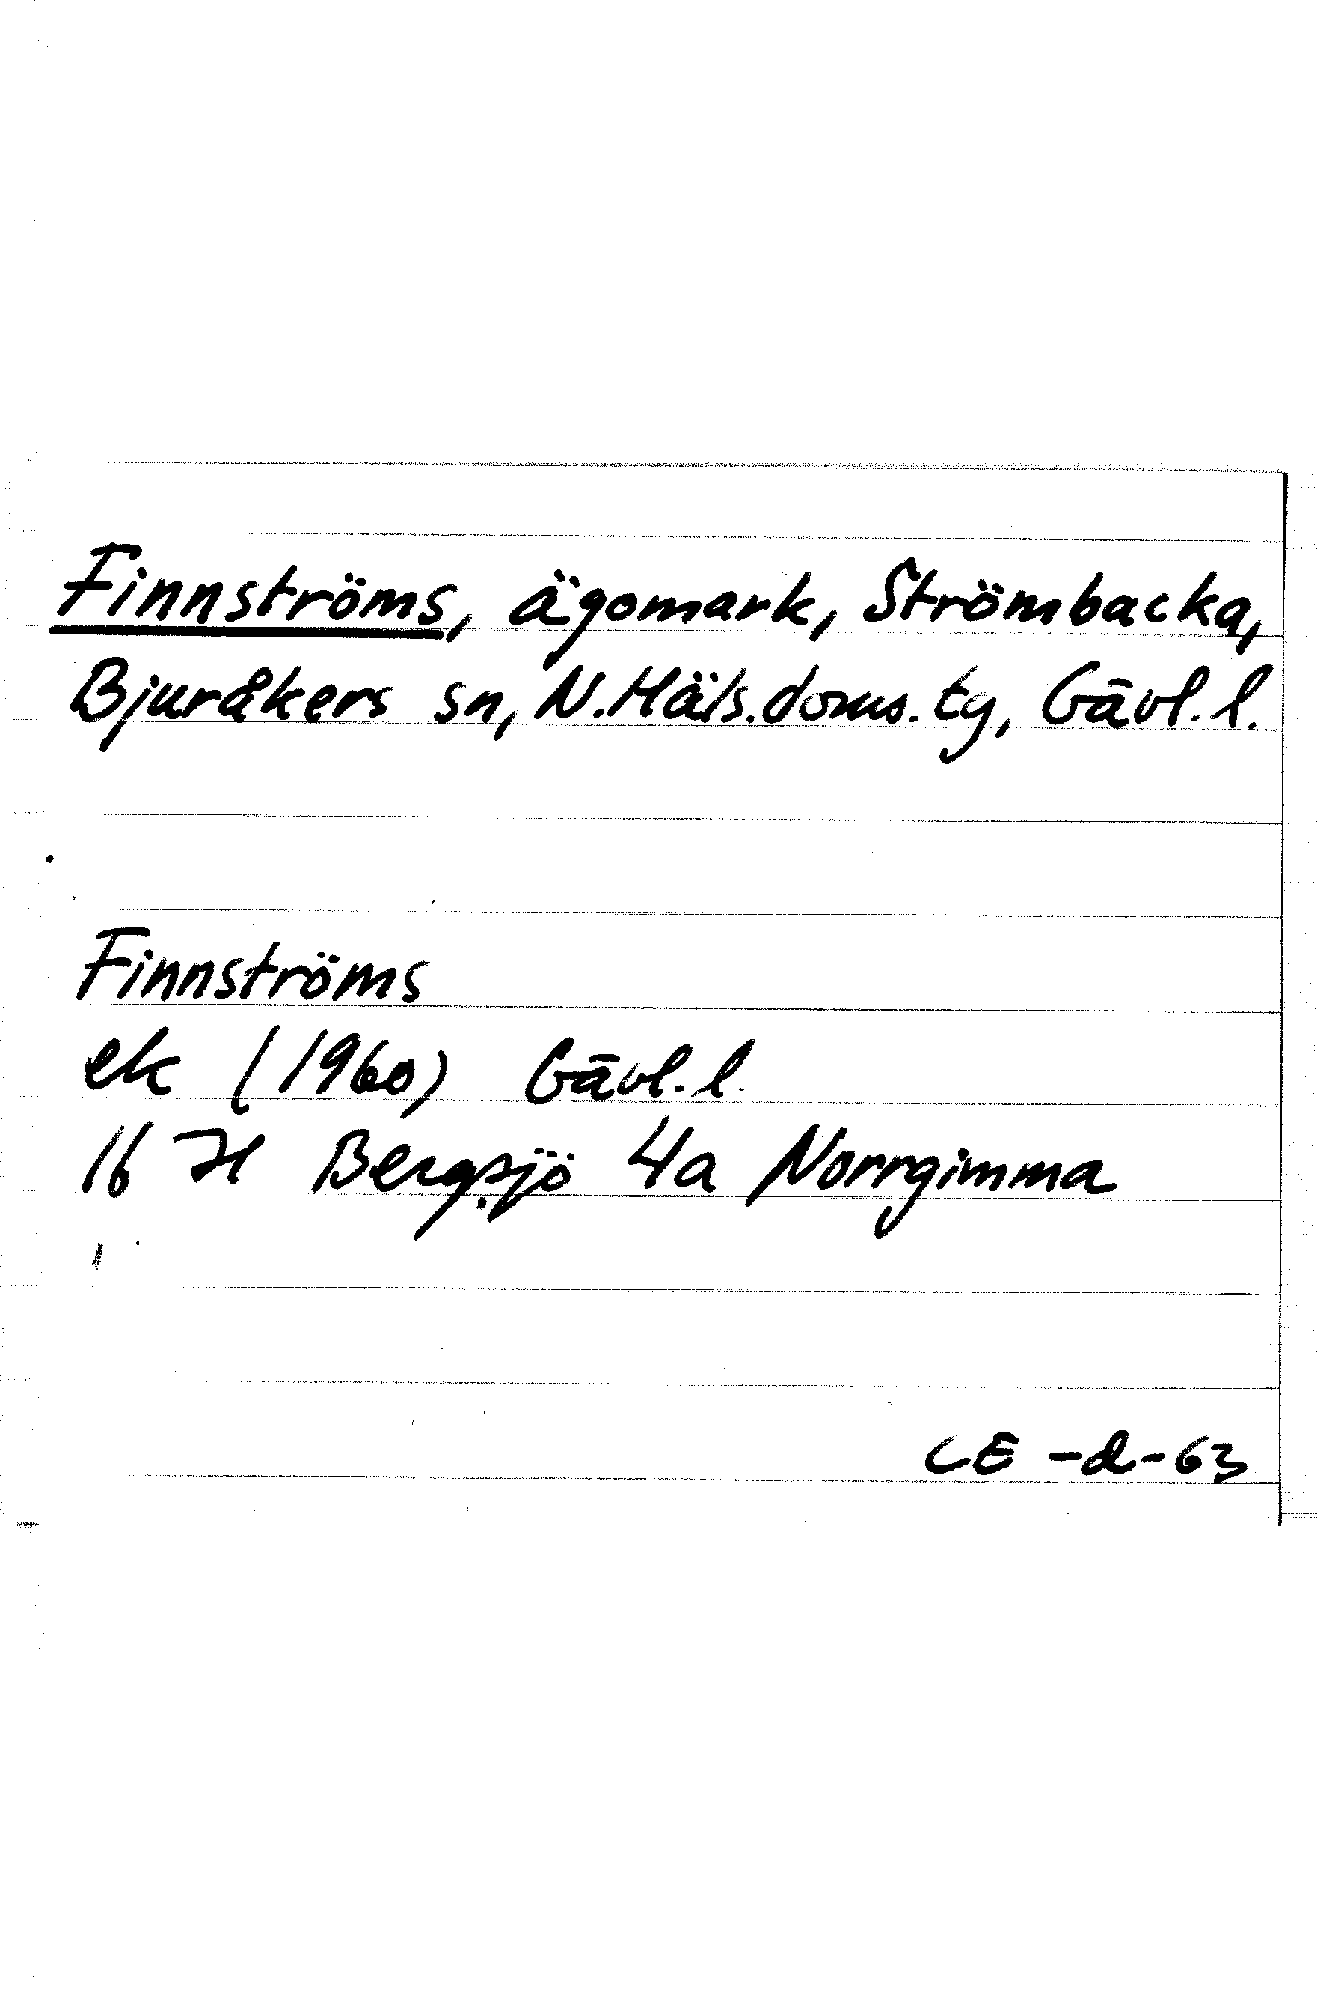 Finnströms, ägomark, Strömbacka,
Bjuråkers sn, N.Häls.doms.tg, Gävl.l.
Finnströms
ek (1960) Gävl.l.
16 H Bergsjö 4a Norrgimma
CE -d-63